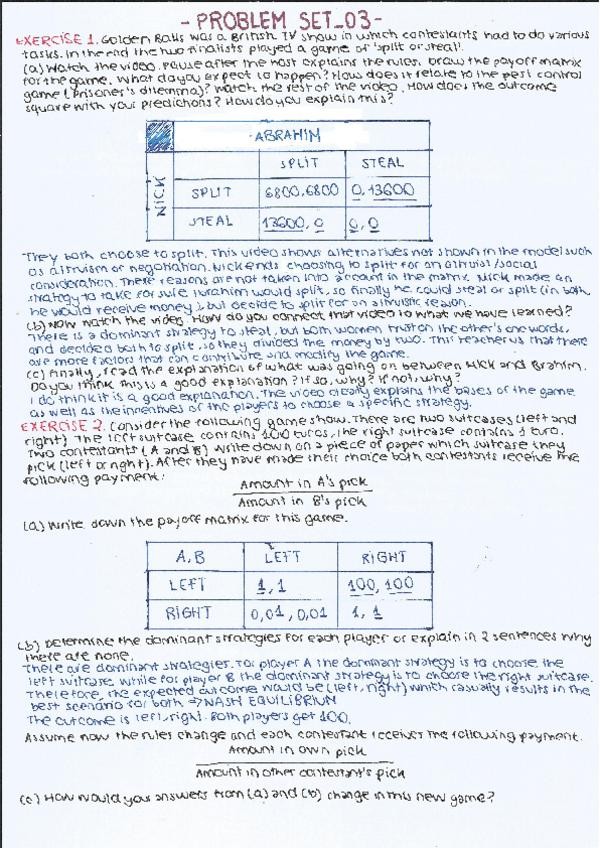 - PROBLEM SET_03 -
EXERCISE 1. Golden Balls was a British TV show in which contestants had to do various
tasks. In the end the two finalists played a game of 'split or steal'.
(a) Watch the video. Pause after the host explains the rules. Draw the payoff matrix
for the game. What do you expect to happen? How does it relate to the pest control
game (prisoner's dilemma)? Watch the rest of the video. How does the outcome
square with your predictions? How do you explain this?
ABRAHIM
SPLIT STEAL
NICK
SPLIT 6800,6800 0,13600
STEAL 13600,0 0,0
They both choose to split. This video shows alternatives not shown in the model such
as altruism or negotiation. Nick ends choosing to split for an altruist/social
consideration. These reasons are not taken into account in the matrix. Nick made an
strategy to take for sure Ibrahim would split, so finally he could steal or split (in both
he would receive money), but decide to split for an altruistic reason.
(b) Now watch the video. How do you connect that video to what we have learned?
There is a dominant strategy to steal, but both women trust on the other's one words,
and decided both to split, so they divided the money by two. This teacher us that there
are more factors that can contribute and modify the game.
(c) Finally, read the explanation of what was going on between Nick and Ibrahim.
Do you think this is a good explanation? If so, why? If not, why?
I do think it is a good explanation. The video clearly explains the bases of the game
as well as the incentives of the players to choose a specific strategy.
EXERCISE 2. Consider the following game show. There are two suitcases (left and
right) The left suitcase contains 100 euros, the right suitcase contains 1 euro.
Two contestants (A and B) write down on a piece of paper which suitcase they
pick (left or right). After they have made their choice both contestants receive the
following payment:
Amount in A's pick
Amount in B's pick
(a) Write down the payoff matrix for this game.
A,B LEFT RIGHT
LEFT 1,1 100,100
RIGHT 0,01,0,01 1,1
(b) Determine the dominant strategies for each player or explain in 2 sentences why
there are none.
There are dominant strategies. For player A the dominant strategy is to choose the
left suitcase while for player B the dominant strategy is to choose the right suitcase.
Therefore, the expected outcome would be (left, right) which casually results in the
best scenario for both ⇒ NASH EQUILIBRIUM
The outcome is left, right. Both players get 100.
Assume now the rules change and each contestant receives the following payment.
Amount in own pick
Amount in other contestant's pick
(c) How would you answers from (a) and (b) change in this new game?